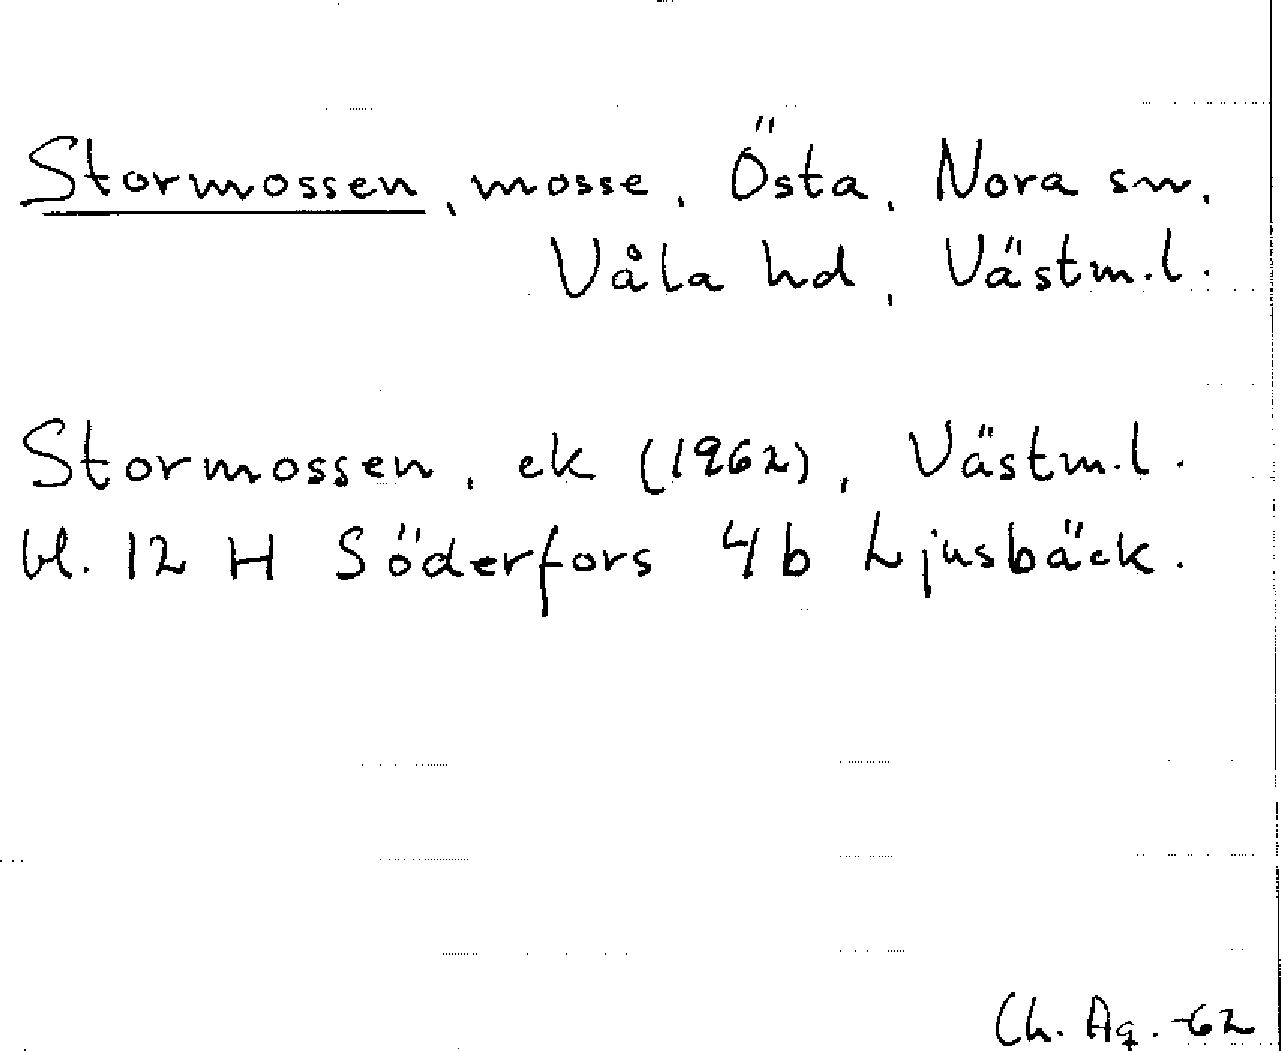 Stormossen, mosse, Östa, Nora sn,
Våla hd, Västm.l.
Stormossen, ek (1962), Västm.l.
bl. 12 H Söderfors 4b Ljusbäck.
Ch. Aq. -62